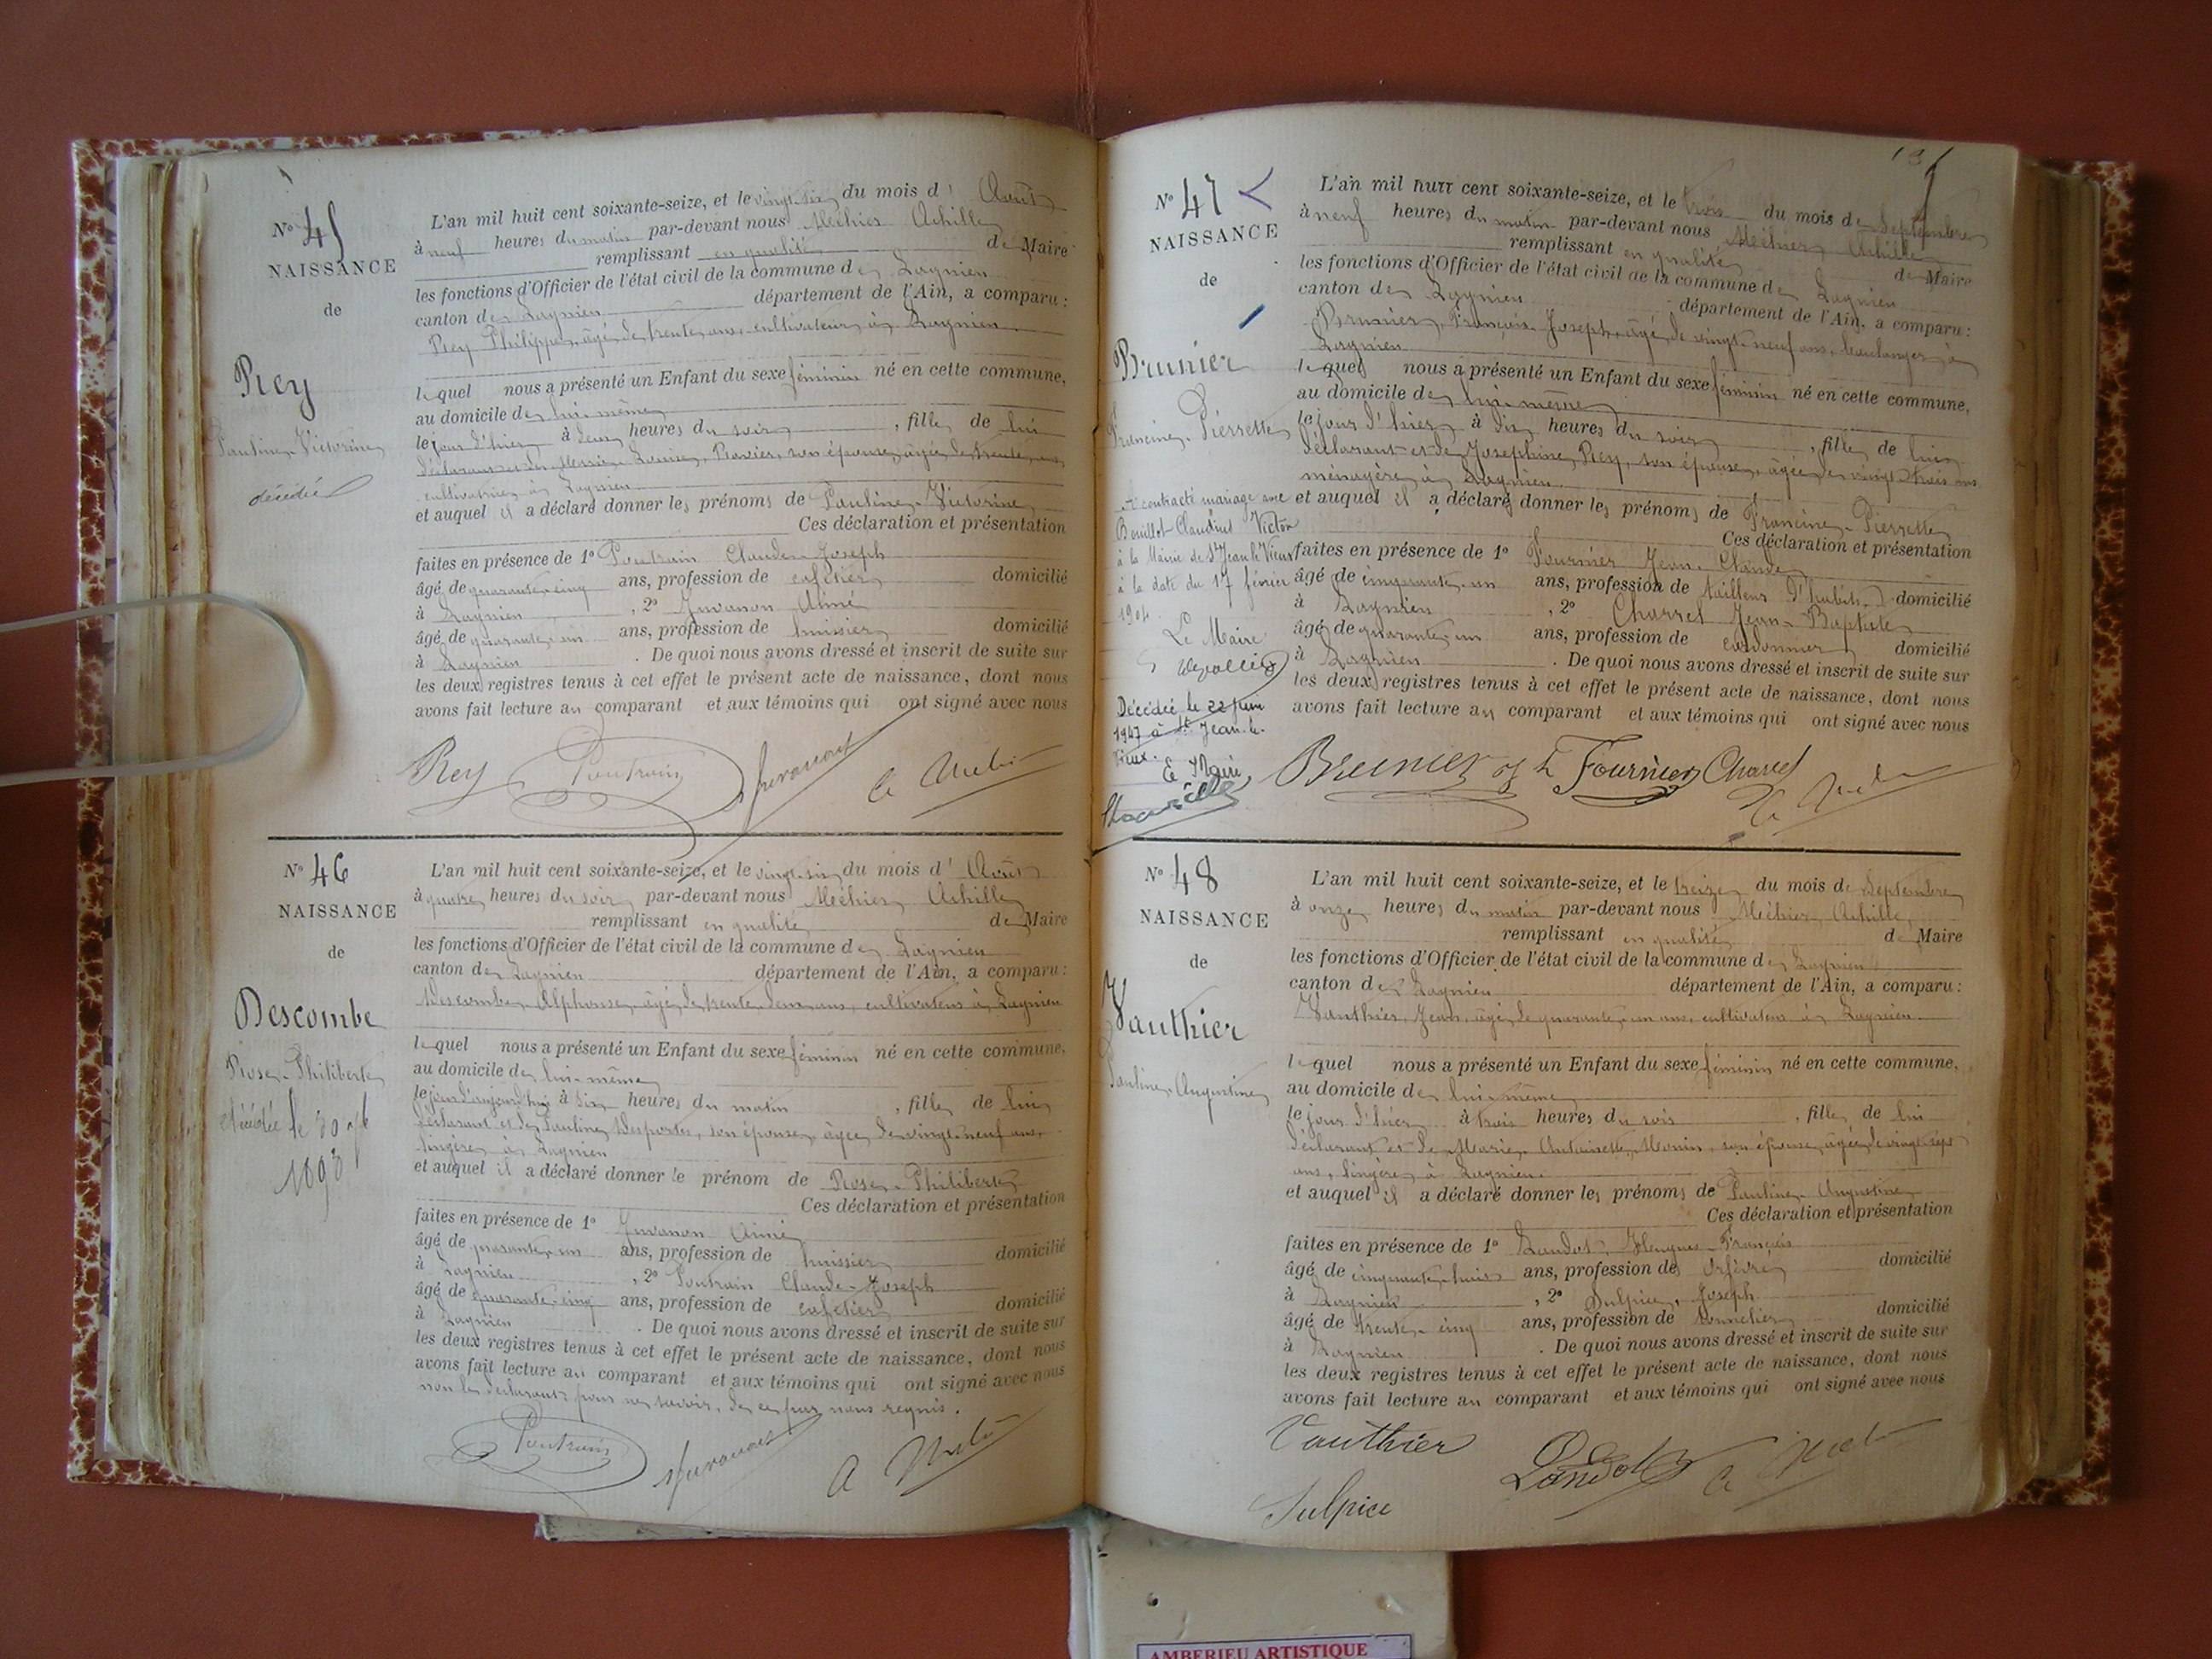 N° 45
NAISSANCE
de
Rey
Pauline Victorine
décédée
L'an mil huit cent soixante-seize, et le vingt-six du mois d' Août
à neuf heures du matin par-devant nous Méhier Achille
remplissant en qualité de Maire
les fonctions d'Officier de l'état civil de la commune de Lagnieu
canton de Lagnieu département de l'Ain, a comparu :
Rey Philippe, âgé de trente ans, cultivateur à Lagnieu
lequel nous a présenté un Enfant du sexe féminin né en cette commune,
au domicile de lui-même
le jour d'hier à deux heures du soir, fille de lui
déclarant et de Louise Ravier, son épouse, âgée de trente ans,
cultivatrice à Lagnieu
et auquel il a déclaré donner les prénoms de Pauline-Victorine
Ces déclaration et présentation
faites en présence de 1° Poutrain Claude-Joseph
âgé de quarante-cinq ans, profession de cafetier domicilié
à Lagnieu, 2° Juvanon Aimé
âgé de quarante-un ans, profession de huissier domicilié
à Lagnieu. De quoi nous avons dressé et inscrit de suite sur
les deux registres tenus à cet effet le présent acte de naissance, dont nous
avons fait lecture au comparant et aux témoins qui ont signé avec nous
Rey Poutrain Juvanon
N° 46
NAISSANCE
de
Descombe
Rose-Philiberte
décédée le 30
L'an mil huit cent soixante-seize, et le vingt-six du mois d' Août
à quatre heures du soir par-devant nous Méhier Achille
remplissant en qualité de Maire
les fonctions d'Officier de l'état civil de la commune de Lagnieu
canton de Lagnieu département de l'Ain, a comparu :
Descombe Alphonse, âgé de trente-deux ans, cultivateur à Lagnieu
lequel nous a présenté un Enfant du sexe féminin né en cette commune,
au domicile de lui-même
le jour d'aujourd'hui à six heures du matin, fille de lui
déclarant et de Pauline Desportes, son épouse, âgée de vingt-neuf ans,
lingère à Lagnieu
et auquel il a déclaré donner le prénom de Rose-Philiberte
Ces déclaration et présentation
faites en présence de 1° Juvanon Aimé
âgé de quarante-un ans, profession de huissier domicilié
à Lagnieu, 2° Poutrain Claude-Joseph
âgé de quarante-cinq ans, profession de cafetier domicilié
à Lagnieu. De quoi nous avons dressé et inscrit de suite sur
les deux registres tenus à cet effet le présent acte de naissance, dont nous
avons fait lecture au comparant et aux témoins qui ont signé avec nous
non le déclarant pour ne savoir, de ce par nous requis.
Poutrain Juvanon
N° 47
NAISSANCE
de
Brunier
Francine-Pierrette
A contracté mariage avec
Bouillot Claudius Victor
à la Mairie de St Jean le Vieux
à la date du 17 février
1904
Le Maire
Décédée le 22 juin
1947 à St Jean-le-
Vieux.
Le Maire
L'an mil huit cent soixante-seize, et le trois du mois de Septembre
à neuf heures du matin par-devant nous Méhier Achille
remplissant en qualité de Maire
les fonctions d'Officier de l'état civil de la commune de Lagnieu
canton de Lagnieu département de l'Ain, a comparu :
Brunier, François-Joseph, âgé de vingt-neuf ans, boulanger à
Lagnieu
lequel nous a présenté un Enfant du sexe féminin né en cette commune,
au domicile de lui-même
le jour d'hier à dix heures du soir, fille de lui
déclarant et de Joséphine Rey, son épouse, âgée de vingt-trois ans
ménagère à Lagnieu
et auquel il a déclaré donner les prénoms de Francine-Pierrette
Ces déclaration et présentation
faites en présence de 1° Fournier Jean-Claude
âgé de cinquante-un ans, profession de tailleur d'habits domicilié
à Lagnieu, 2° Charvet Jean-Baptiste
âgé de quarante-un ans, profession de cordonnier domicilié
à Lagnieu. De quoi nous avons dressé et inscrit de suite sur
les deux registres tenus à cet effet le présent acte de naissance, dont nous
avons fait lecture au comparant et aux témoins qui ont signé avec nous
Brunier Fournier Charvet
N° 48
NAISSANCE
de
Vauthier
Pauline-Augustine
L'an mil huit cent soixante-seize, et le treize du mois de Septembre
à onze heures du matin par-devant nous Méhier Achille,
remplissant en qualité de Maire
les fonctions d'Officier de l'état civil de la commune de Lagnieu
canton de Lagnieu département de l'Ain, a comparu :
Vauthier, Jean, âgé de quarante-un ans, cultivateur à Lagnieu
lequel nous a présenté un Enfant du sexe féminin né en cette commune,
au domicile de lui-même
le jour d'hier à trois heures du soir, fille de lui
déclarant et de Marie Antoinette Monin, son épouse, âgée de vingt-sept
ans, lingère à Lagnieu
et auquel il a déclaré donner les prénoms de Pauline-Augustine
Ces déclaration et présentation
faites en présence de 1° Landot, Hugues-François
âgé de cinquante-huit ans, profession de Orfèvre domicilié
à Lagnieu, 2° Sulpice, Joseph
âgé de trente-cinq ans, profession de domicilié
à Lagnieu. De quoi nous avons dressé et inscrit de suite sur
les deux registres tenus à cet effet le présent acte de naissance, dont nous
avons fait lecture au comparant et aux témoins qui ont signé avec nous
Vauthier Landot
Sulpice
AMBERIEU ARTISTIQUE